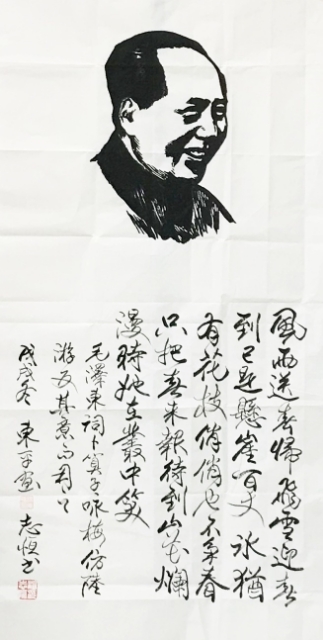 風雨送春歸飛雪迎春
到已是懸崖百丈冰猶
有花枝俏俏也不爭春
只把春來報待到山花爛
漫時她在叢中笑
毛澤東詞卜算子咏梅仿陸
游反其意而用之
戊戌冬 東平畫 志恒书